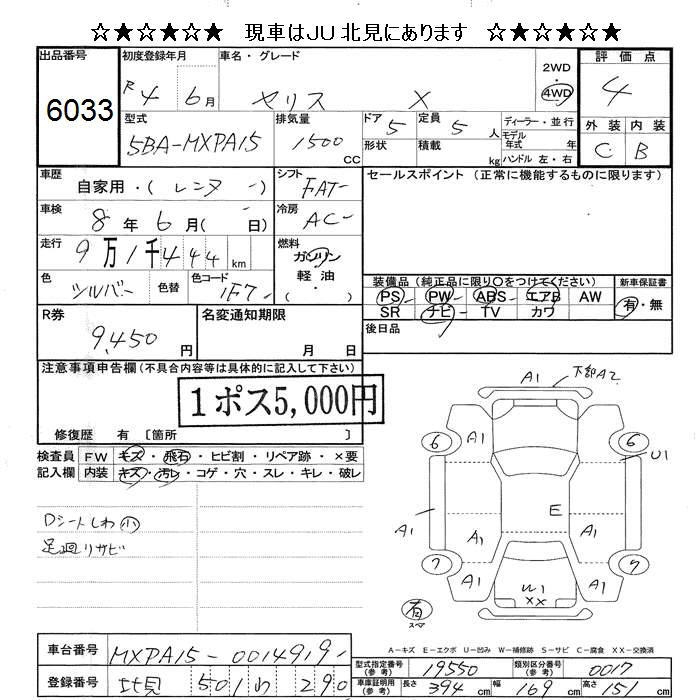 ☆★☆★☆ 現車はJU北見にあります ☆★☆★☆
出品番号 6033
初度登録年月 R4 6月
車名・グレード ヤリス X
2WD 4WD
評価点 4
型式 5BA-MXPA15
排気量 1500 CC
ドア 5 形状
定員 5人 積載 kg
ディーラー・並行
モデル年式 年
ハンドル 左・右
外装 内装
C B
車歴 自家用・(レンタ )
シフト FAT
セールスポイント (正常に機能するものに限ります)
車検 8年6月( 日)
冷房 AC
走行 9万1千444km
燃料 ガソリン 軽油 ・( )
色 シルバー 色替
色コード 1F7
装備品 (純正品に限り〇をつけてください)
PS PW ABS エアB AW
SR ナビ TV カワ
新車保証書 有・無
R券 9,450円
名変通知期限 月 日
後日品
注意事項申告欄 (不具合内容等は具体的に記入して下さい)
1ポス5,000円
修復歴 有 〔箇所 〕
検査員記入欄
FW キズ・飛石・ヒビ割・リペア跡・×要
内装 キズ・汚レ・コゲ・穴・スレ・キレ・破レ
Dシートしわ小
足廻リサビ
A1 下部A2
6 A1 6 U1
A1 E A1
A1 A1
7 A1 A1 7
W1
XX
有
スペア
A-キズ E-エクボ U-凹み W-補修跡 S-サビ C-腐食 XX-交換済
車台番号 MXPA15-0014919
登録番号 北見 501 わ 290
型式指定番号(参考) 19550
類別区分番号(参考) 0017
車庫証明用(参考) 長さ 394cm 幅 169cm 高さ 151cm